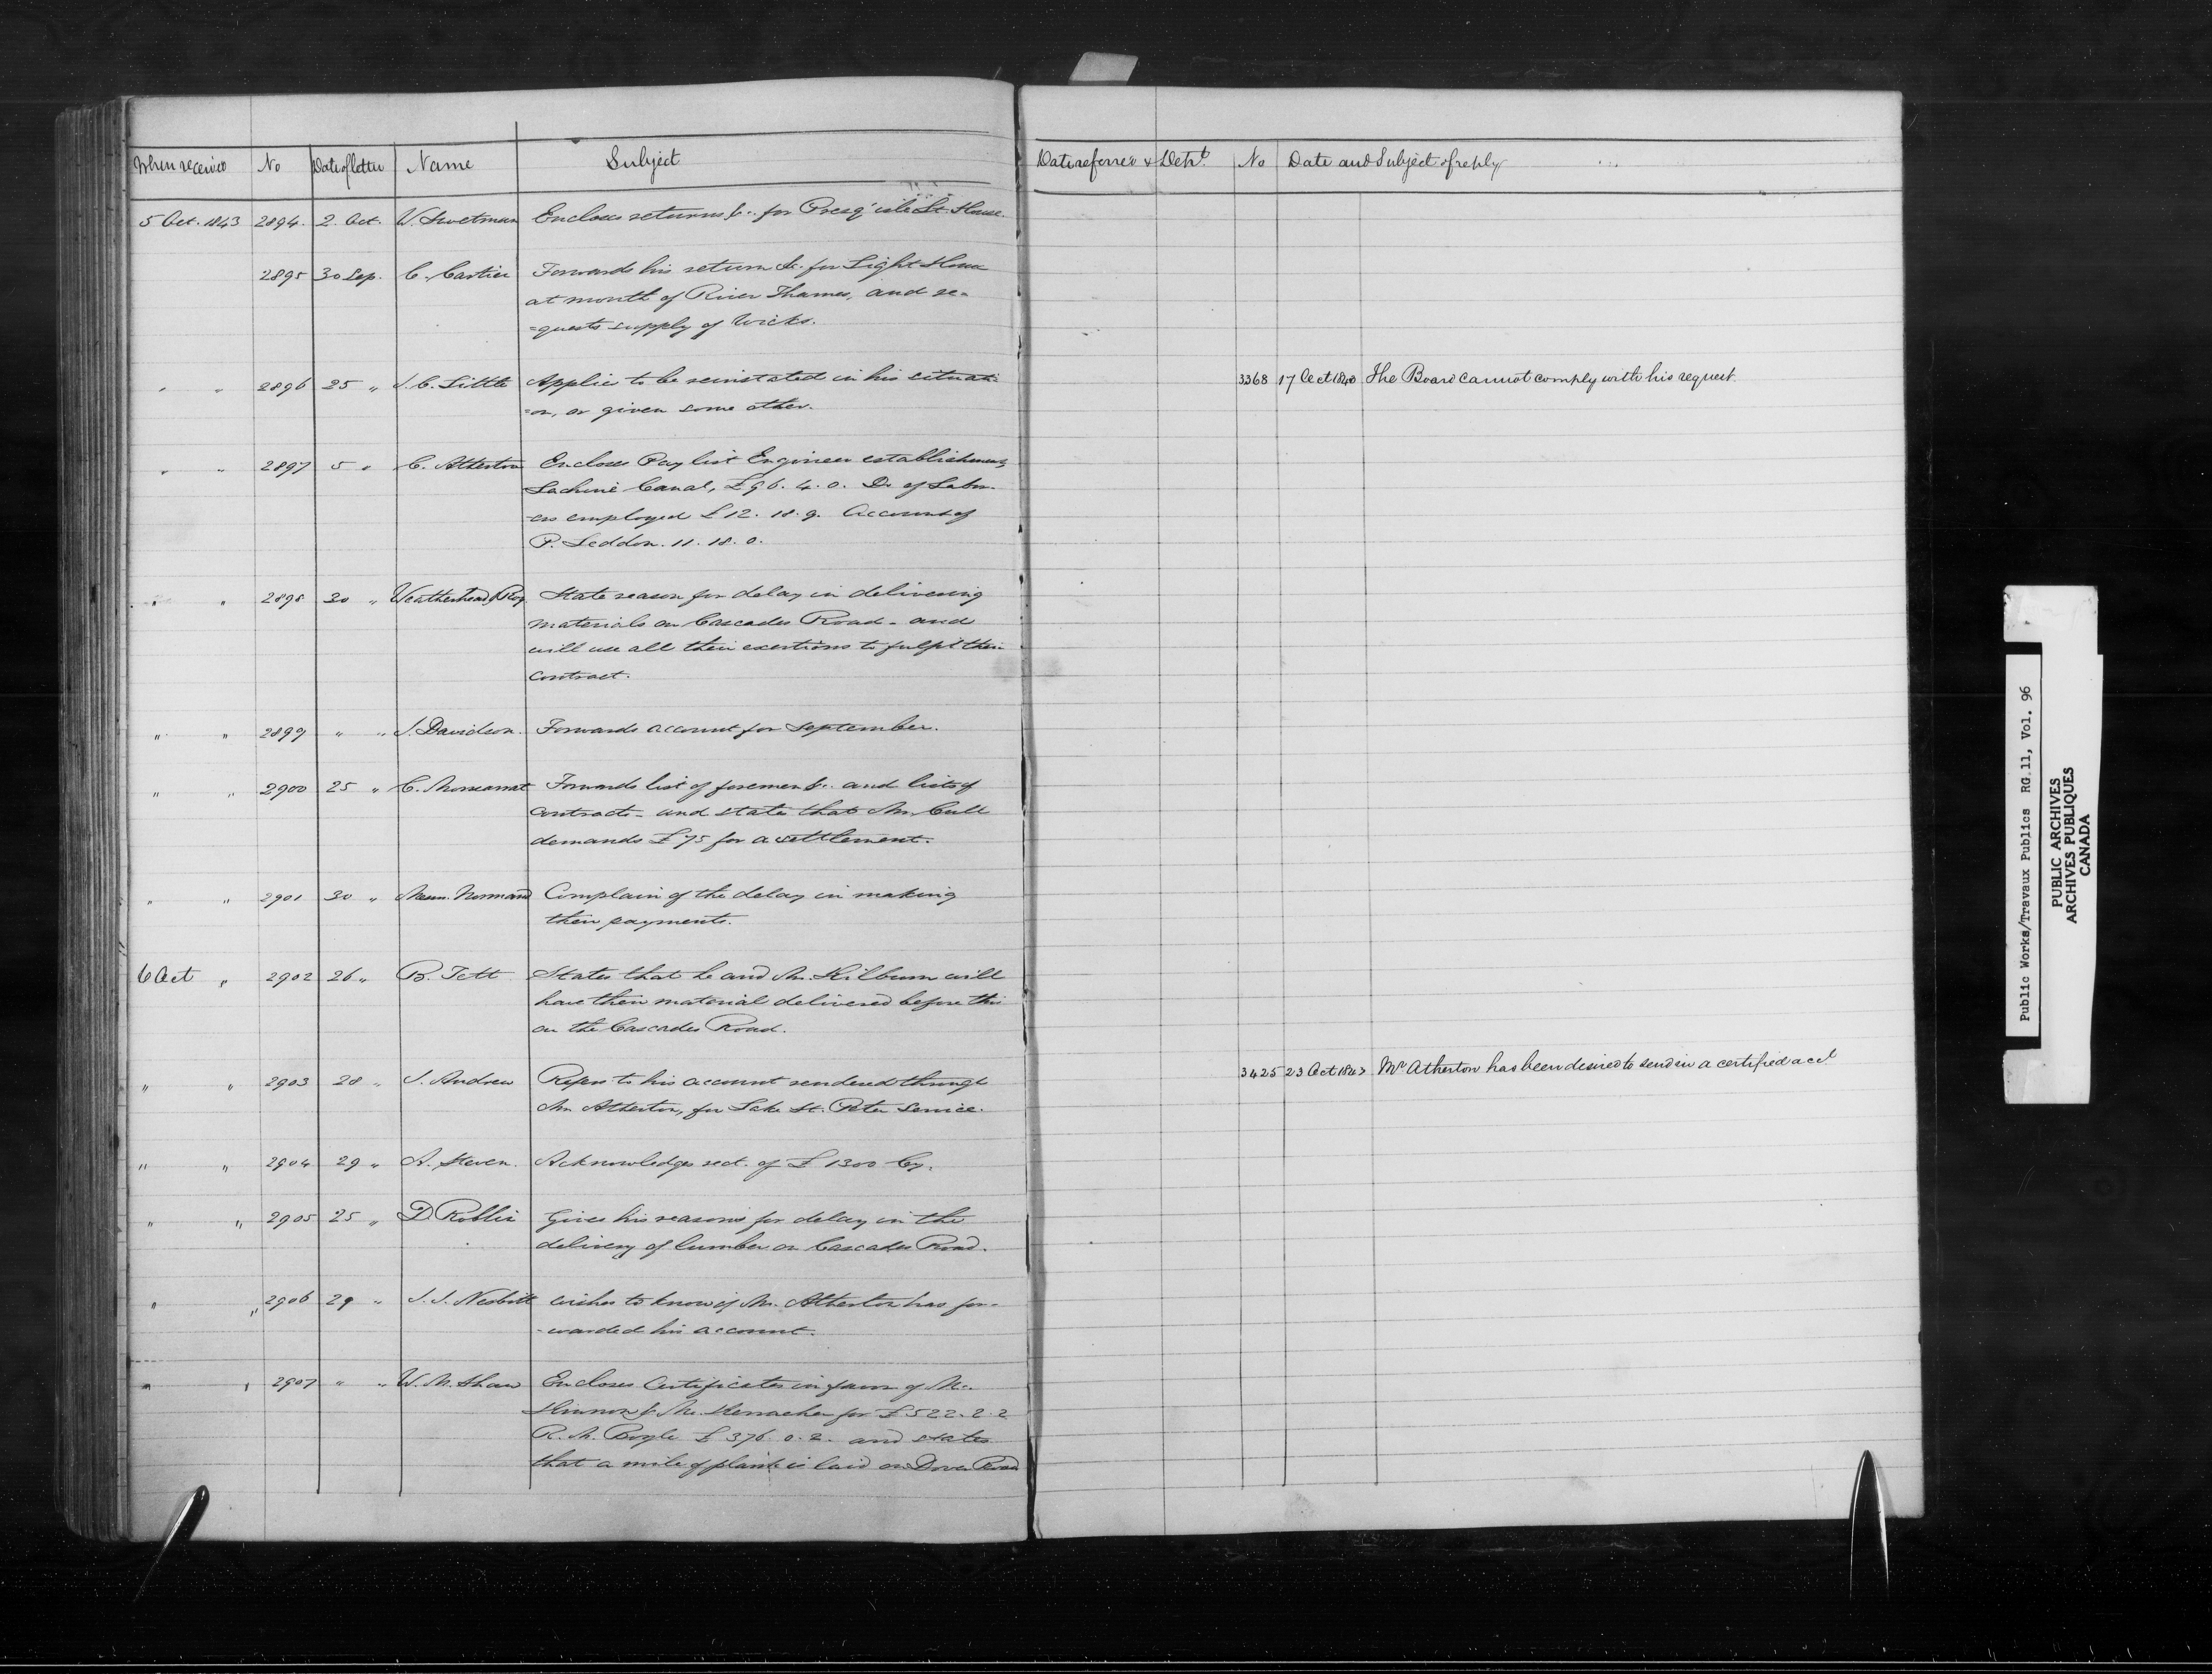 When received No Date of letter Name Subject
5 Oct. 1843 2894. 2. Oct. W. Swetman Encloses returns &c. for Presq' isle Lt. House.
2895 30 Sep. C. Cartier Forwards his return &c. for Light House
at mouth of River Thames, and re-
=quests supply of Wicks.
" " 2896 25 " J. C. Little Applies to be reinstated in his situati-
=on, or given some other.
" " 2897 5 " C. Atherton Encloses Pay list Engineer establishment,
Lachine Canal, £96. 4. 0. Do. of Labor-
-ers employed £12. 18. 9. Account of
P. Leddon. 11. 18. 0.
" " 2898 30 " Weatherhead & Roy State reason for delay in delivering
materials on Cascades Road - and
will use all their exertions to fulfil their
contract.
" " 2899 " " J. Davidson. Forwards account for September.
" " 2900 25 " C. Monsarrat Forwards list of foremen &c. and lists of
contracts - and states that Mr. Cull
demands £75 for a settlement.
" " 2901 30 " Messrs. Normand Complain of the delay in making
their payments.
6 Oct " 2902 26 " B. Tett States that he and Mr. Kilburn will
have their material delivered before this
on the Cascades Road.
" " 2903 28 " J. Andrew Refers to his account rendered through
Mr. Atherton, for Lake St. Peter service.
" " 2904 29 " A. Steven. Acknowledges rect. of £1300 Cy.
" " 2905 25 " D Roblin Gives his reasons for delay in the
delivery of lumber on Cascades Road.
" " 2906 29 " J. J. Nesbitt wishes to know if Mr. Atherton has for-
-warded his account.
" " 2907 " " W. M. Shaw Encloses Certificates in favor of Mc.
Kinnon & for £522. 2. 2
R. M. Boyle £376. 0. 2. and states
that a mile of plank is laid on Dover Road
Date referred & Dept. No Date and Subject of reply
3368 17 Oct 1843 The Board cannot comply with his request.
3425 23 Oct 1843 Mr. Atherton has been desired to send in a certified acct
Public Works/Travaux Publics RG 11, Vol. 96
PUBLIC ARCHIVES
ARCHIVES PUBLIQUES
CANADA